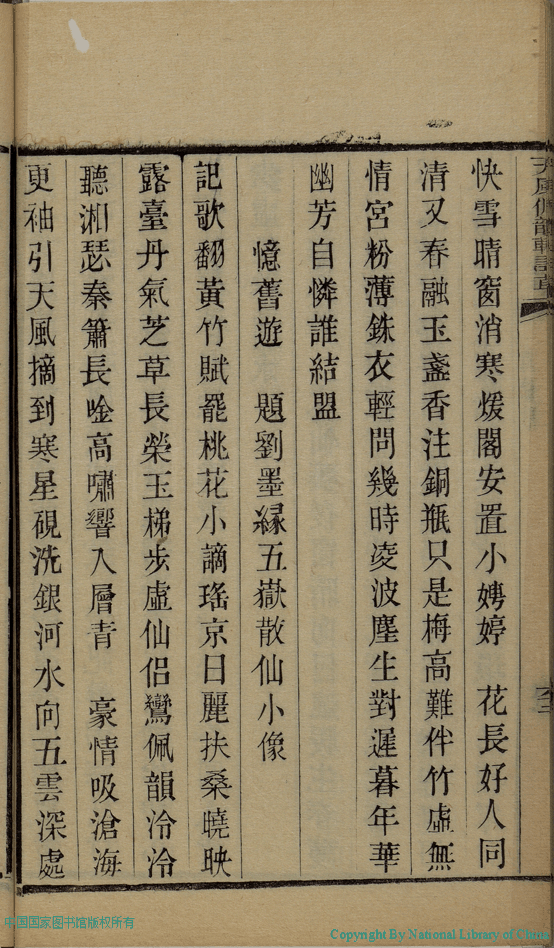 快雪晴窗消寒煖閣安置小娉婷　花長好人同
清又春融玉盞香注銅瓶只是梅高難伴竹虛無
情宮粉薄銖衣輕問幾時凌波塵生對遲暮年華
幽芳自憐誰結盟
憶舊遊　題劉墨緣五嶽散仙小像
記歌翻黃竹賦罷桃花小謫瑤京日麗扶桑曉映
露臺丹氣芝草長榮玉梯步虛仙侶鸞佩韻泠泠
聽湘瑟秦簫長唫高嘯響入層青　豪情吸滄海
更袖引天風摘到寒星硯洗銀河水向五雲深處
中国国家图书馆版权所有
Copyright By National Library of China